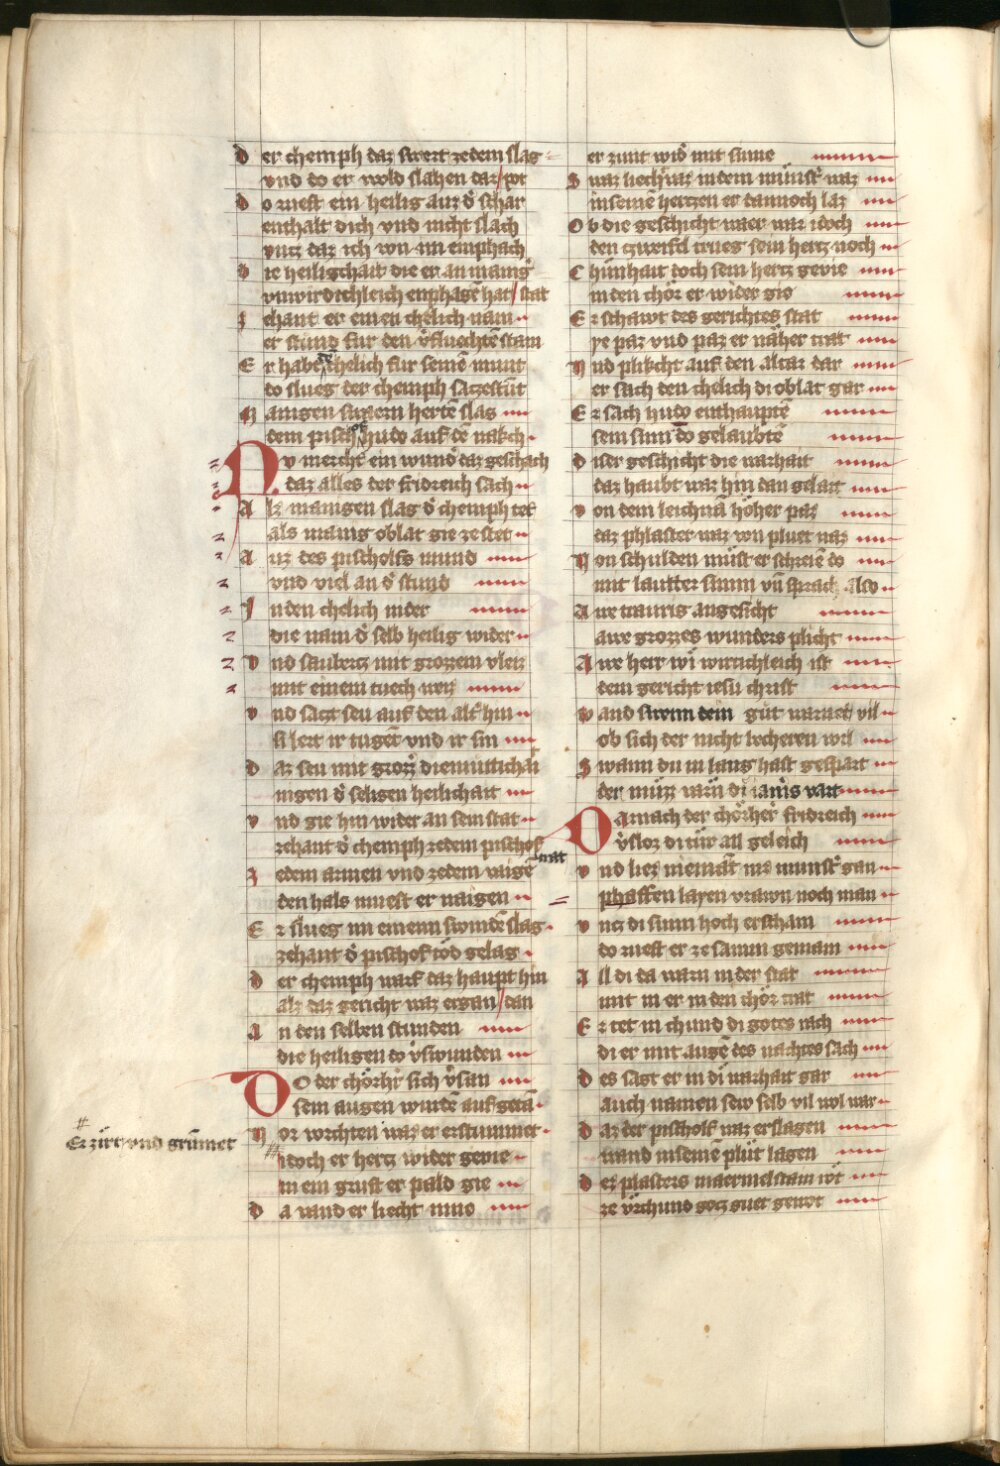 der chemph daz swert ze dem slag
vnd do er wold slahen dar / pot
do rueft ein heilig auz d̉ schar
enthalt dich vnd nicht slach
vntz daz ich von im emphach
die heilichait die er an manig̉
vnwirdichleich enphagē hat / stat
zehant er einen chelich nam
er stund fur den v̉fluechtē stam
Er habt dē chelich fur seinē munt
do slueg der chemph sa zestūt
manigen swern hertē slag
dem pischof hudo auf dē nakch
Nv mercht ein wund̉ daz geschach
daz alles der fridreich sach
Alz manigen slag d̉ chemph tet
als manig oblat gie ze stet
auz des pischolfs mund
vnd viel an d̉ stund
In den chelich nider
die nam d̉ selb heilig wider
Vnd saubertz mit grozzem vleiz
mit einem tuech weiz
vnd satzt seu auf den alt̉ hin
si lert ir tugent vnd ir sin
Daz seu mit grozz̉ diemutichait
nigen d̉ seligen heilichait
vnd gie hin wider an sein stat
zehant d̉ chemph ze dem pischof trat
zedem armen vnd zedem vaigē
den hals muest er naigen
Er slueg im einenn swindē slag
zehant d̉ pischof tod gelag
der chemph warf daz haupt hin
alz daz gericht waz ergan / dan
An den selben stunden
die heiligen do v̉swunden
Do der chorh̉r sich v̉san
sein augen wurdē auf getā
Vor vorchten waz er erstummet
Er zirt vnd grūmet
idoch er hertz wider gevie
in ein gruft er pald gie
Da vand er liecht inno
er zunt wid̉ mit sinne
Swaz liecht̉ waz in dem münst̉ waz
in seinē hertzen er dannoch laz
Ob die geschicht waer war idoch
den zweifel trueg sein hertz noch
Chünhait doch sein hertz gevie
in den chor er wider gie
Er schawt des gerichtes stat
ye paz vnd paz er näher trat
Vnd plikcht auf den altar dar
er sach den chelich di oblat gar
Er sach hudo enthauptē
sein sinn do gelaubtē
diser geschicht die warhait
daz haubt waz hin dan gelait
von dem leichnā hoher paz
daz phlaster waz von pluet naz
Von schulden müst er schreiē do
mit lautter stimm vn̄ sprach also
Awe traurig angesicht
awe grozzes wunders plicht
Awe herr wi wirtichleich ist
dem gericht iesu christ
wand swenn dein gut warnet vil
ob sich der nicht becheren wil
Swann du in lang hast gespart
der müzz varn di iamers vart
Darnach der chorher̉ fridreich
v̉sloz di tür all geleich
vnd liez niemāt inz munst̉ gan
phaffen layen vrawn noch man
vntz di sunn hoch erscham
do rueft er ze samm gemain
All di da warn in der stat
mit in er in den chor trat
Er tet in chund di gotes rach
di er mit augē des nachtes sach
des sagt er in di warhait gar
auch namen sew selb vil wol war
daz der pischolf waz erslagen
wand in seinē plut lagen
des phlasters maermelstain rot
ze vrchund gotz